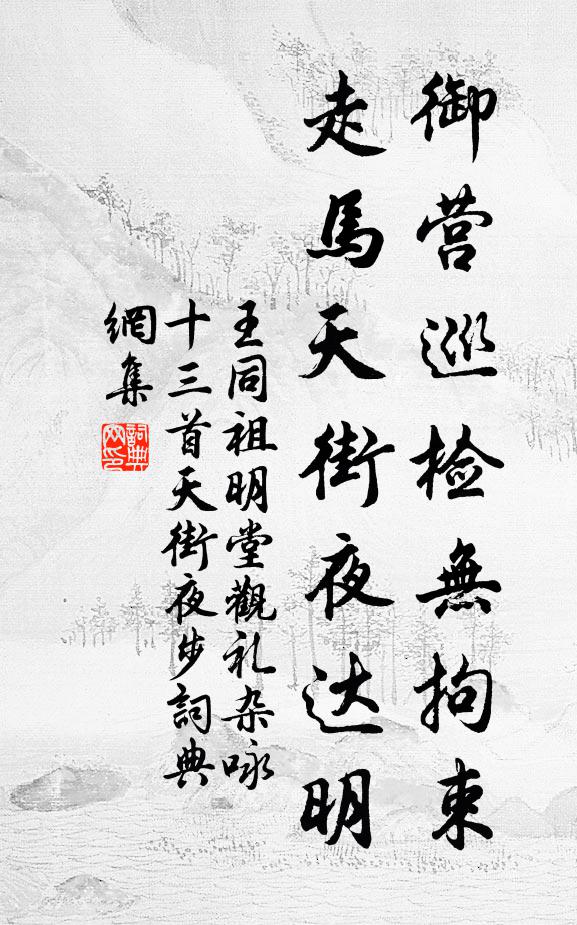 御营巡检無拘束
走馬天街夜达明
王同祖明堂觀礼杂咏
十三首天街夜步詞典
網集
詞典
网印